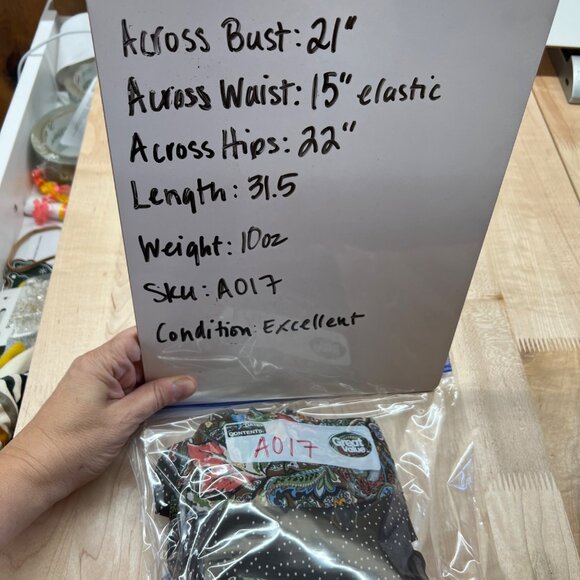 Across Bust: 21"
Across Waist: 15" elastic
Across Hips: 22"
Length: 31.5
Weight: 10oz
Sku: A017
Condition: Excellent
CONTENTS:
A017
Great Value